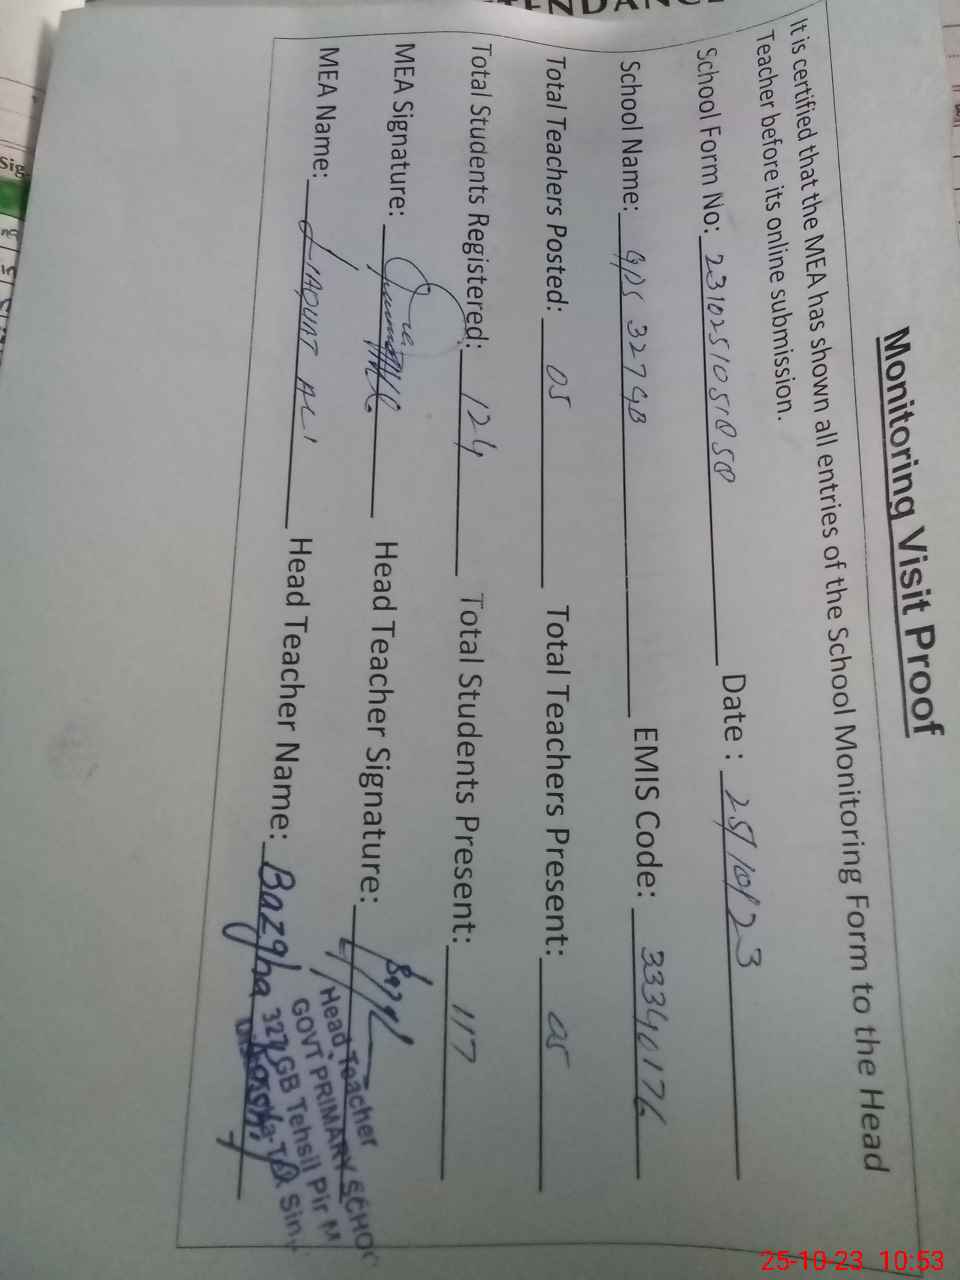 Monitoring Visit Proof
It is certified that the MEA has shown all entries of the School Monitoring Form to the Head
Teacher before its online submission.
School Form No: 231025105050 Date : 25/10/23
School Name: GPS 327 GB EMIS Code: 33340176
Total Teachers Posted: 05 Total Teachers Present: 05
Total Students Registered: 124 Total Students Present: 117
MEA Signature: Head Teacher Signature:
MEA Name: LIAQUAT ALI Head Teacher Name: Bazgha
Head Teacher
GOVT PRIMARY SCHO
327 GB Tehsil Pir M
Sig.
25-10-23 10:53